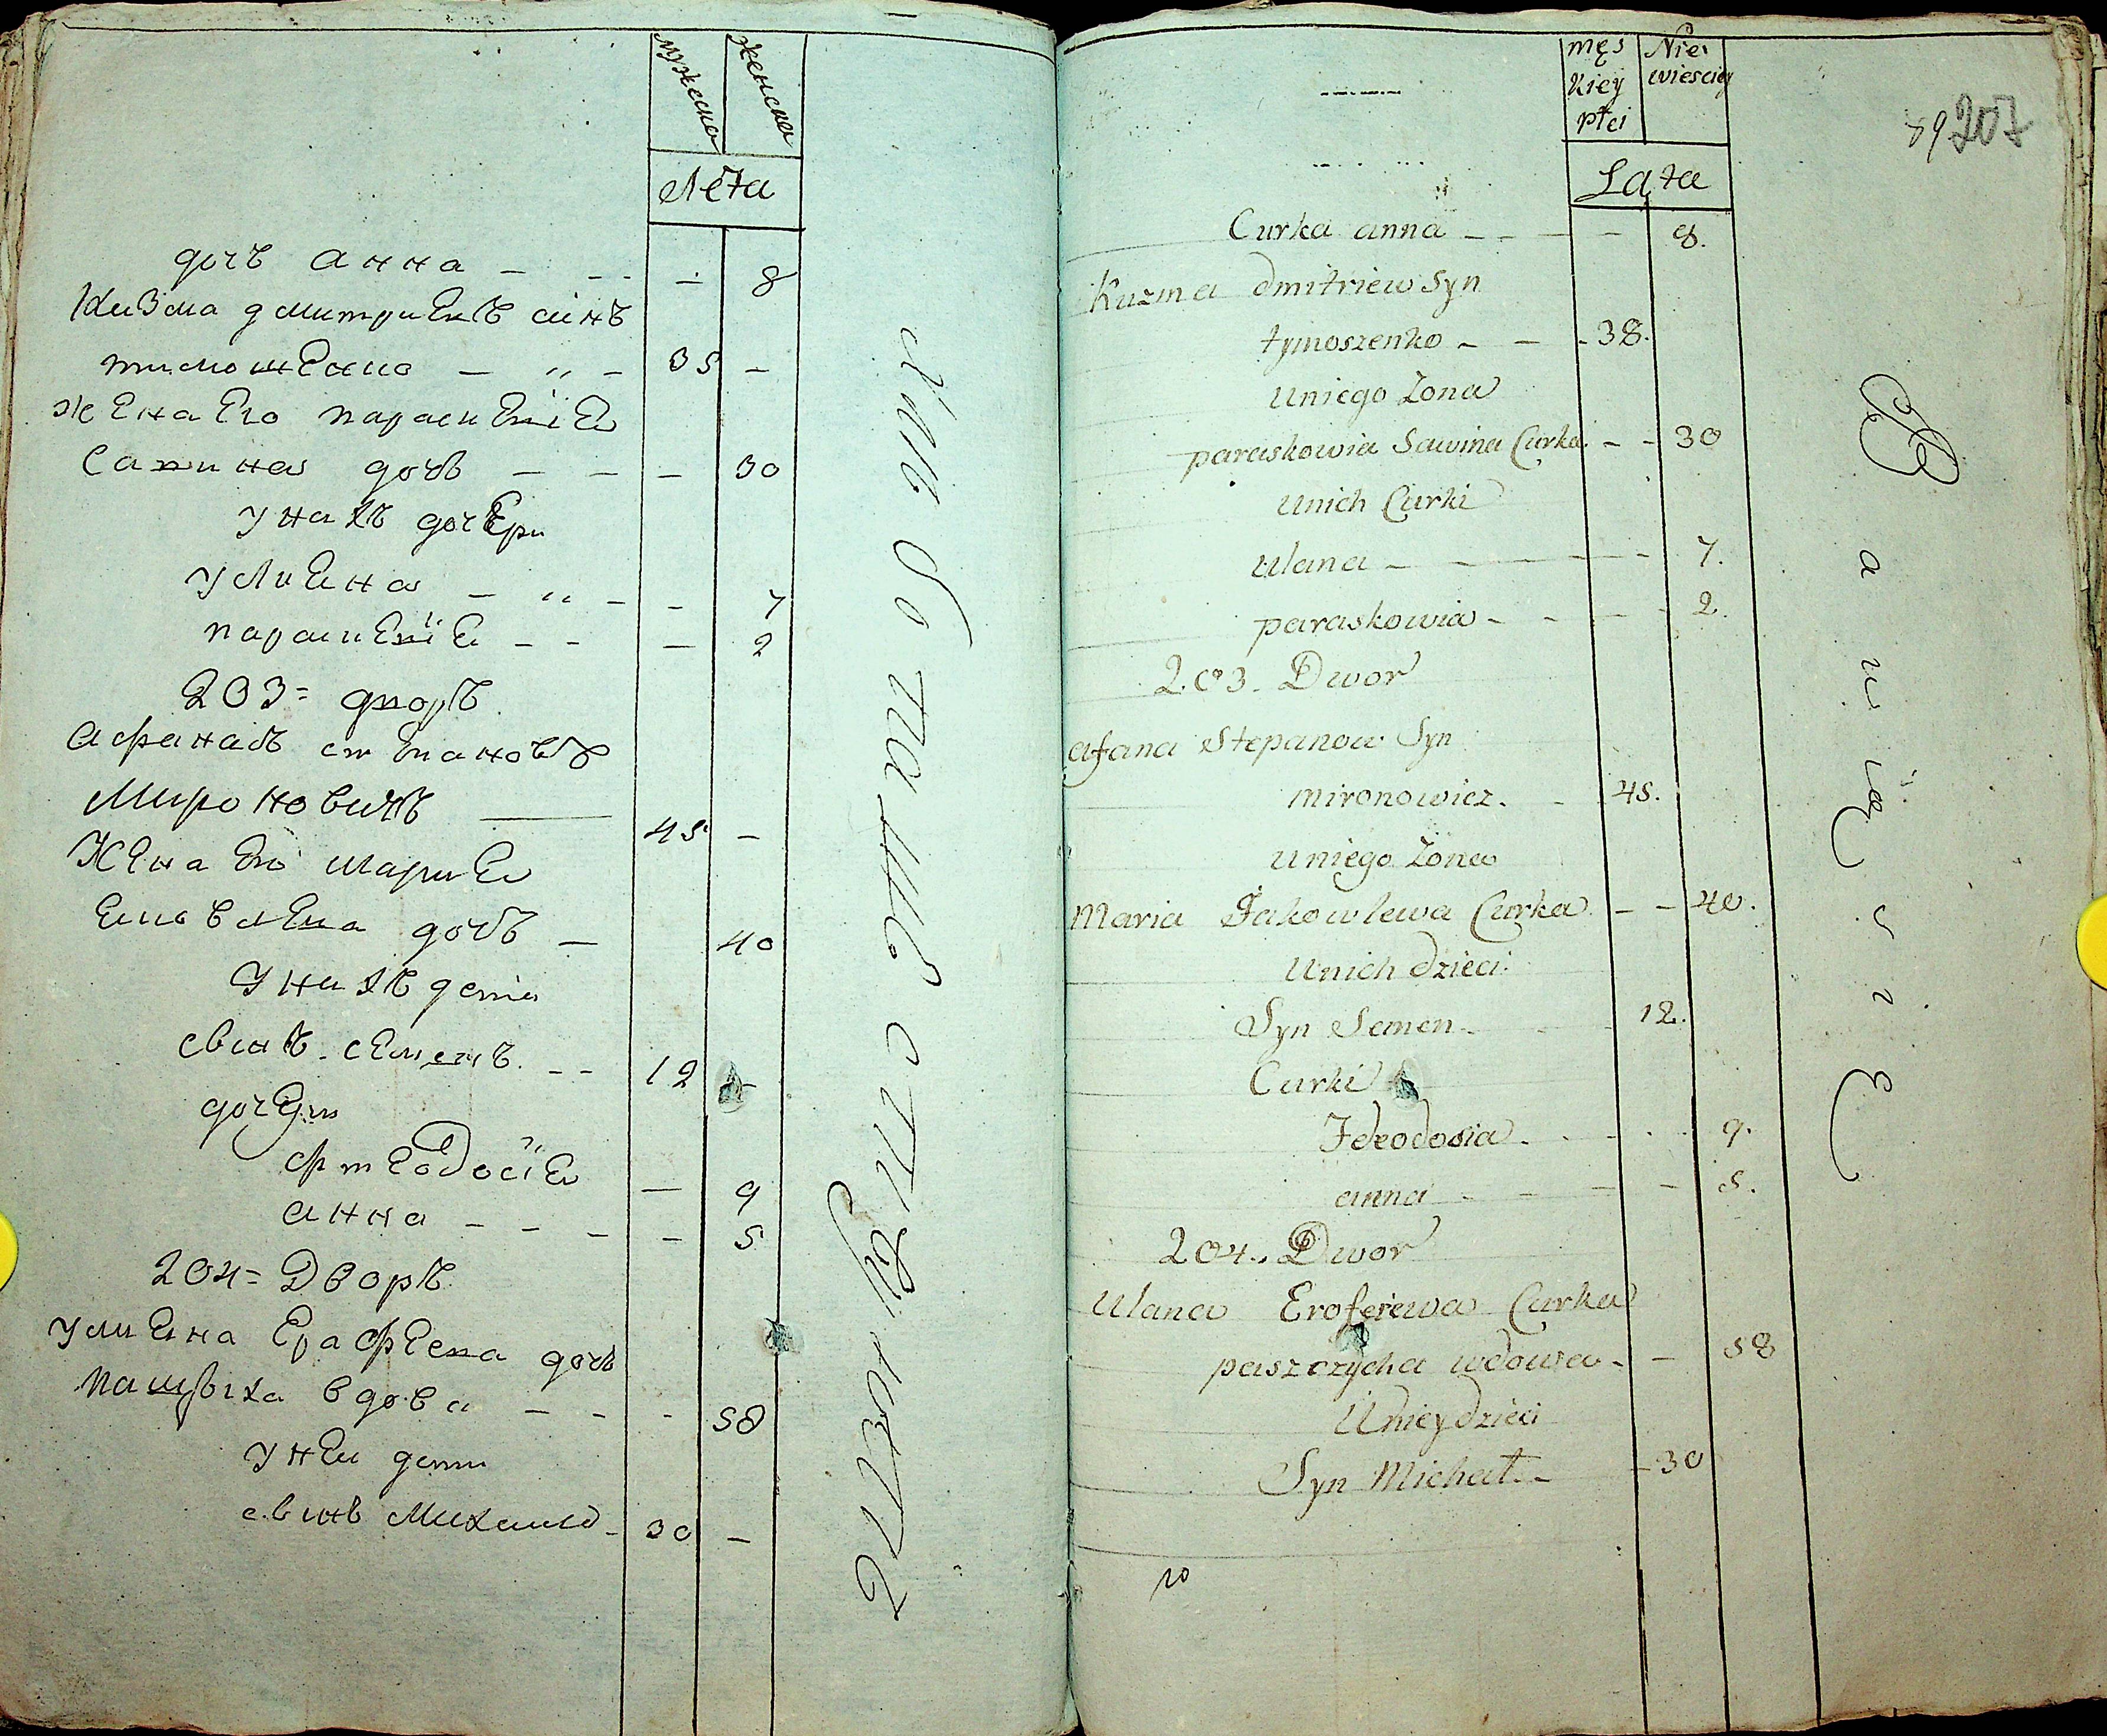 мужеска
женска
лета
дочь анна - - - - 8
Кизма дмитриевъ синъ
тимошенко - „ - 35 -
жена его параскевiя
савина дочь - - - 30
у нихъ дочери
улияна - „ - - 7
параскевiя - - - 2
203 = дворъ
афанасъ степановъ
Мироновичъ 45 -
Жена его мария
яковлева дочь - 40
у нихъ дети
свинъ семенъ - - 12 -
дочери
фтеодосiя - 9
анна - - - - 5
204 = Дворъ
улияна Ерафеева дочь
пащиха вдова - - - 58
у неи дети
свинъ Михаило - 30 -
męs
kiey
płci
Nie
wiesciey
Lata
207
Curka anna - - - - 8.
Kuzma dmitriew Syn
tymoszenko - - - 38.
uniego Zona
paraskowia Sawina Curka - - 30
unich Curki
ulana - - - - 7.
paraskowia - - - 2.
203. Dwor
afana Stepanow Syn
mironowicz. - 45.
uniego Zona
Maria Jakowlewa Curka - - 40.
Unich dzieci
Syn Semen - - 12.
Curki
Fdeodosia - - - 9.
anna - - - - 5.
204. Dwor
Ulana Erofeiewa Curka
paszczycha wdowa - - 58
Uniey dzieci
Syn Michał - - 30